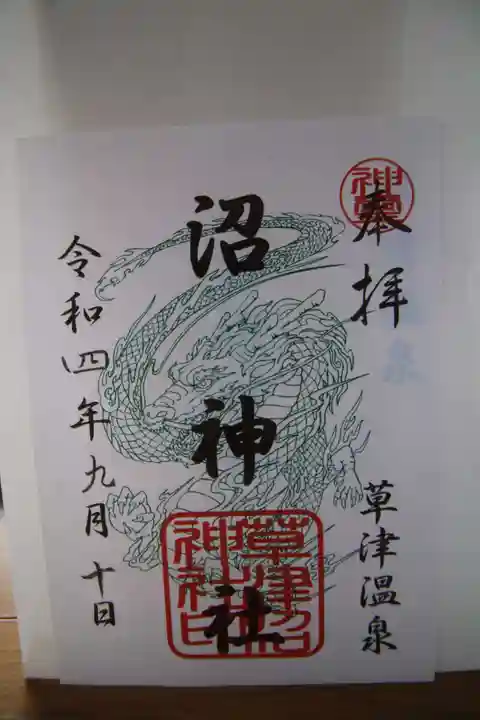 奉拝
草津温泉
沼神社
令和四年九月十日
草津沼
神社印